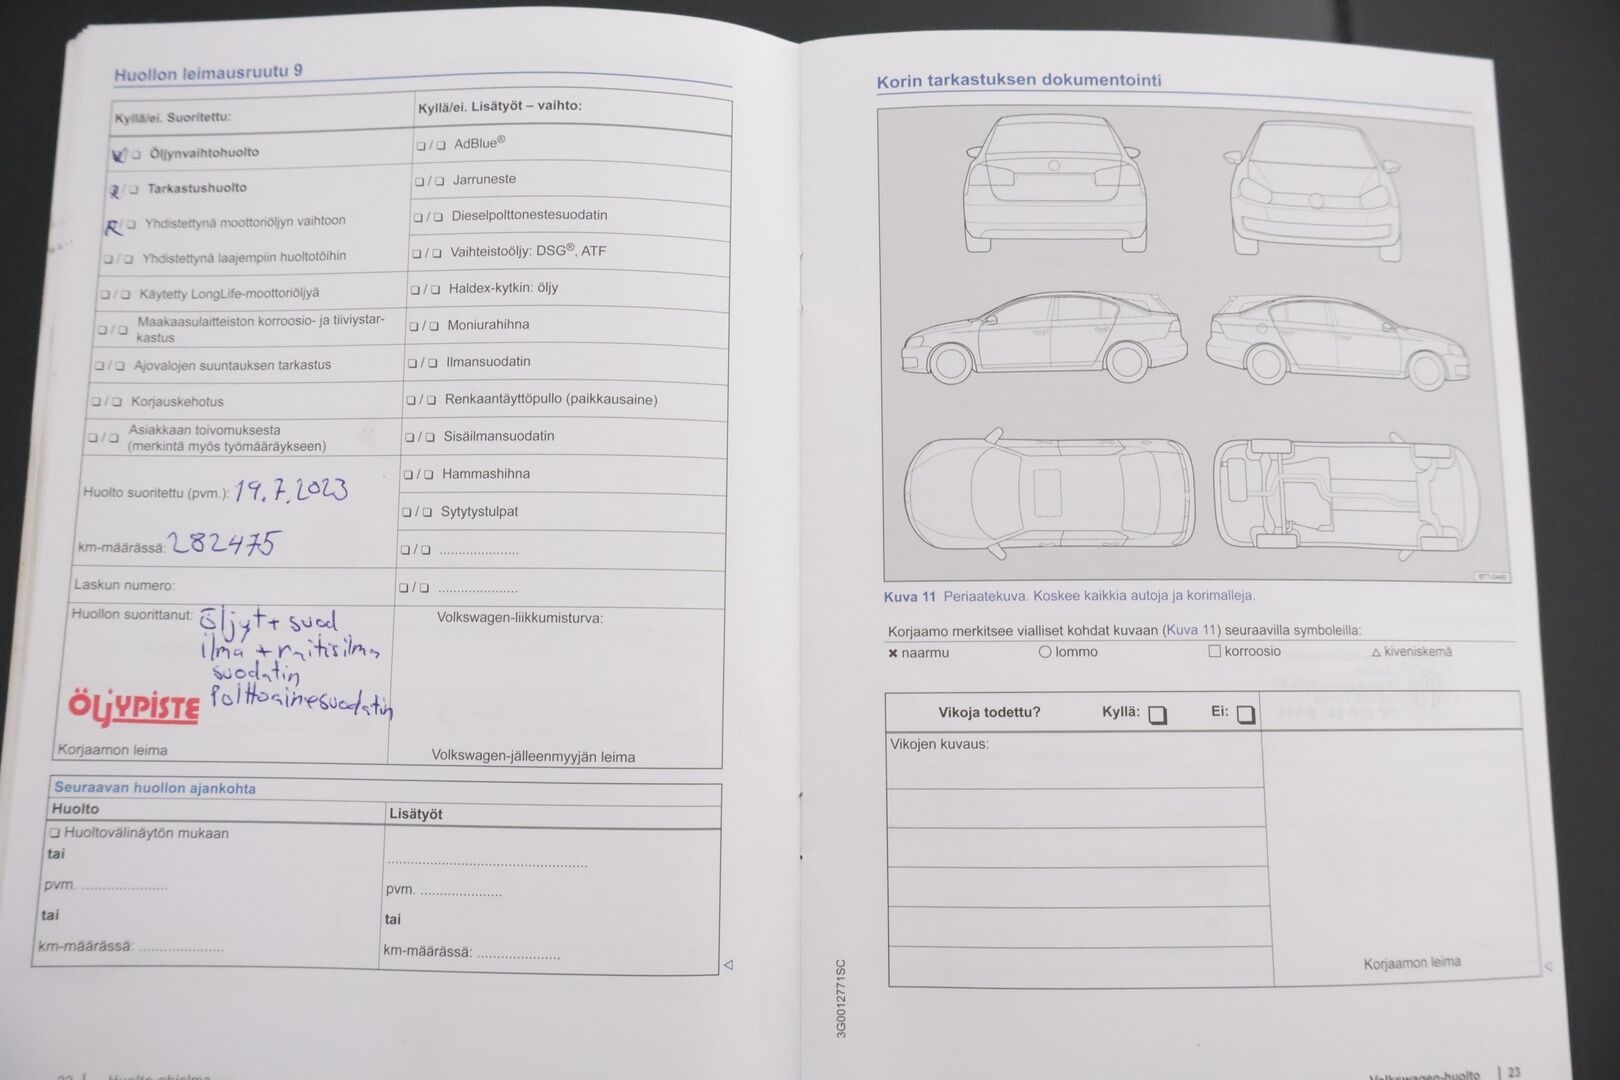 Huollon leimausruutu 9
Kyllä/ei. Suoritettu:
Öljynvaihtohuolto
Tarkastushuolto
Yhdistettynä moottoriöljyn vaihtoon
Yhdistettynä laajempiin huoltotöihin
Käytetty LongLife-moottoriöljyä
Maakaasulaitteiston korroosio- ja tiiviystar-
kastus
Ajovalojen suuntauksen tarkastus
Korjauskehotus
Asiakkaan toivomuksesta
(merkintä myös työmääräykseen)
Huolto suoritettu (pvm.): 19.7.2023
km-määrässä: 282475
Laskun numero:
Huollon suorittanut: Öljyt + suod
ilma + raitisilma
suodatin
Polttoainesuodatin
ÖLJYPISTE
Korjaamon leima
Kyllä/ei. Lisätyöt – vaihto:
AdBlue®
Jarruneste
Dieselpolttonestesuodatin
Vaihteistoöljy: DSG®, ATF
Haldex-kytkin: öljy
Moniurahihna
Ilmansuodatin
Renkaantäyttöpullo (paikkausaine)
Sisäilmansuodatin
Hammashihna
Sytytystulpat
Volkswagen-liikkumisturva:
Volkswagen-jälleenmyyjän leima
Seuraavan huollon ajankohta
Huolto
Huoltovälinäytön mukaan
tai
pvm. ......................
tai
km-määrässä: ......................
Lisätyöt
pvm. ......................
tai
km-määrässä: ......................
Korin tarkastuksen dokumentointi
Kuva 11 Periaatekuva. Koskee kaikkia autoja ja korimalleja.
Korjaamo merkitsee vialliset kohdat kuvaan (Kuva 11) seuraavilla symboleilla:
naarmu lommo korroosio kiveniskemä
Vikoja todettu? Kyllä: Ei:
Vikojen kuvaus:
Korjaamon leima
3G0012771SC
Volkswagen-huolto | 23